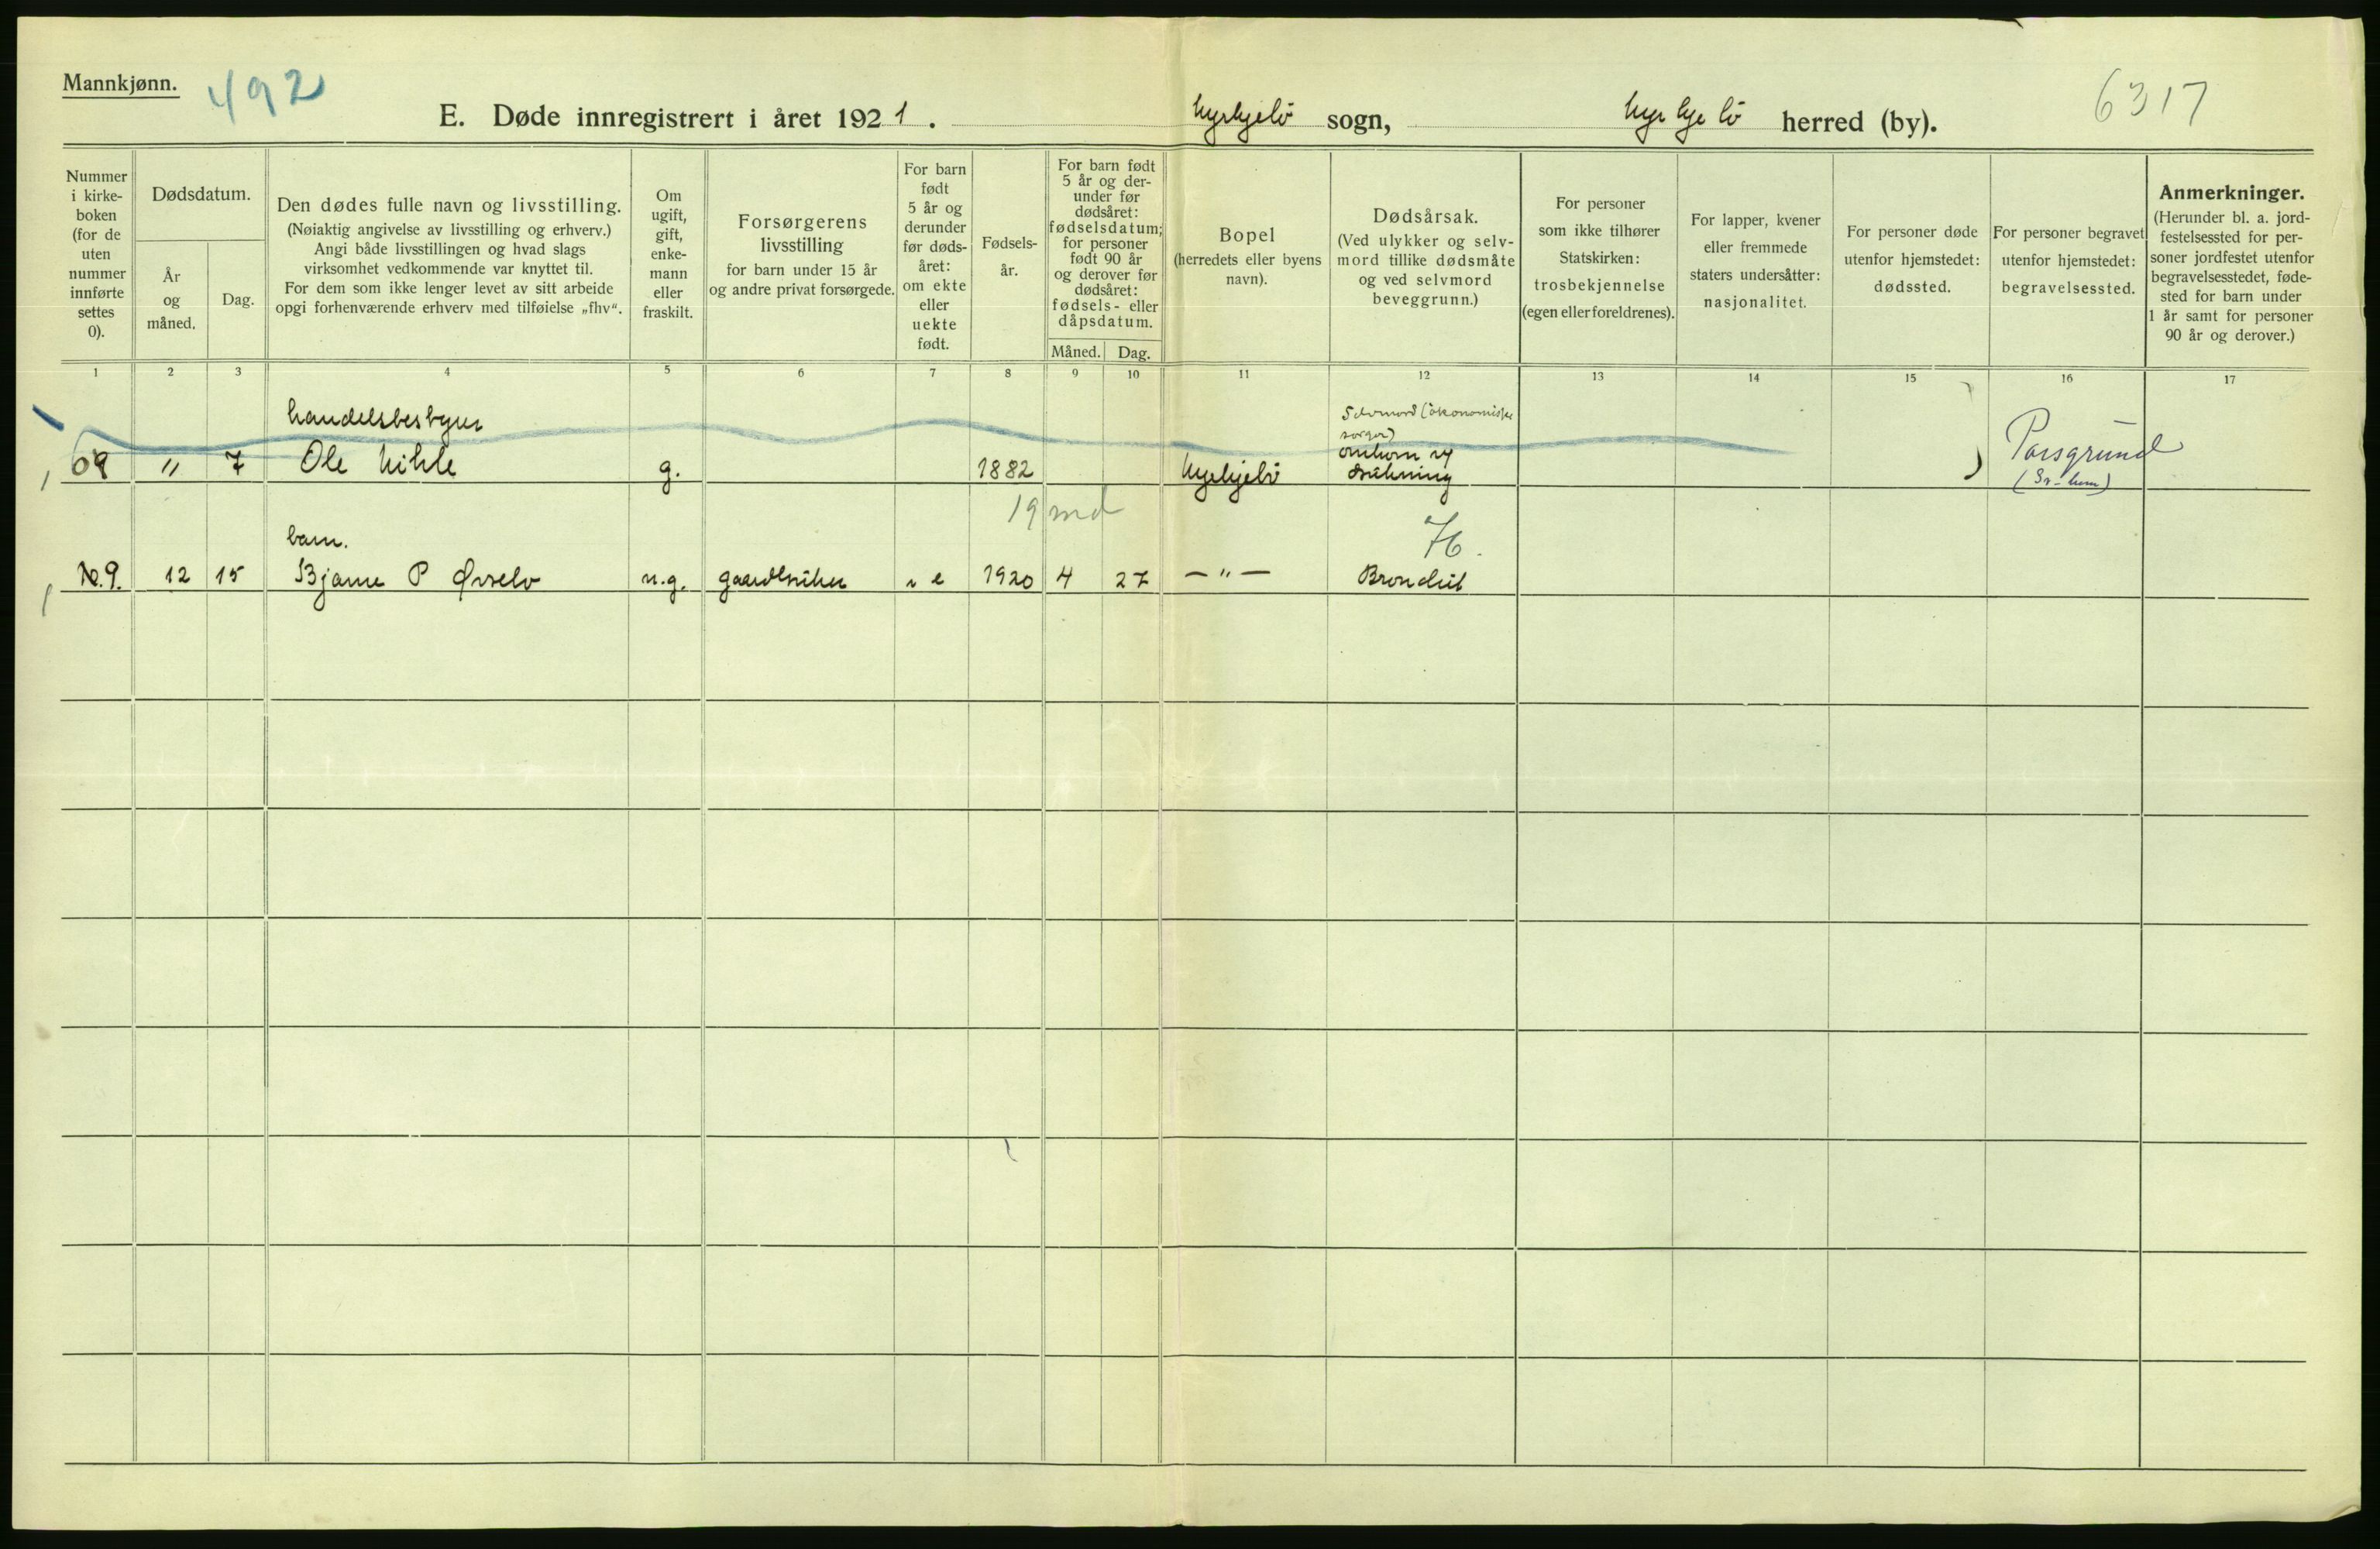 Mannkjønn.
492
E. Døde innregistrert i året 1921.
sogn,
herred (by).
6317
Nummer
i kirke-
boken
(for de
uten
nummer
innførte
settes
0).
Dødsdatum.
År
og
måned.
Dag.
Den dødes fulle navn og livsstilling.
(Nøiaktig angivelse av livsstilling og erhverv.)
Angi både livsstillingen og hvad slags
virksomhet vedkommende var knyttet til.
For dem som ikke lenger levet av sitt arbeide
opgi forhenværende erhverv med tilføielse „fhv“.
Om
ugift,
gift,
enke-
mann
eller
fraskilt.
Forsørgerens
livsstilling
for barn under 15 år
og andre privat forsørgede.
For barn
født
5 år og
derunder
før døds-
året:
om ekte
eller
uekte
født.
Fødsels-
år.
For barn født
5 år og der-
under før
dødsåret:
fødselsdatum;
for personer
født 90 år
og derover før
dødsåret:
fødsels- eller
dåpsdatum.
Måned.
Dag.
Bopel
(herredets eller byens
navn).
Dødsårsak.
(Ved ulykker og selv-
mord tillike dødsmåte
og ved selvmord
beveggrunn.)
For personer
som ikke tilhører
Statskirken:
trosbekjennelse
(egen eller foreldrenes).
For lapper, kvener
eller fremmede
staters undersåtter:
nasjonalitet.
For personer døde
utenfor hjemstedet:
dødssted.
For personer begravet
utenfor hjemstedet:
begravelsessted.
Anmerkninger.
(Herunder bl. a. jord-
festelsessted for per-
soner jordfestet utenfor
begravelsesstedet, føde-
sted for barn under
1 år samt for personer
90 år og derover.)
1 2 3 4 5 6 7 8 9 10 11 12 13 14 15 16 17
handelsbestyrer
Selvmord (økonomiske
sorger)
" 7 Ole g. 1882
Porsgrund
19 md
76.
barn.
No. 9. 12 15 Bjarne P u.g. e 1920 4 27 — " —